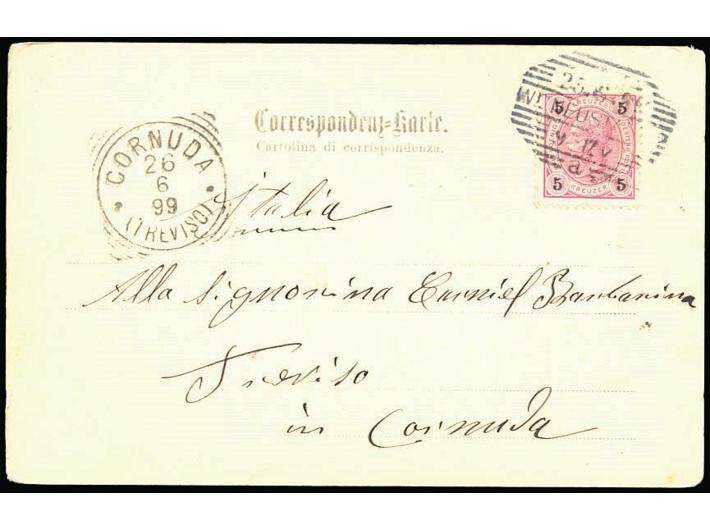 Correspondenz-Karte.
Cartolina di corrispondenza.
CORNUDA
26
6
99
(TREVISO)
5 KREUZER 5
5 KREUZER 5
Italia
Alla Signorina Barbarina
Treviso
in Cornuda